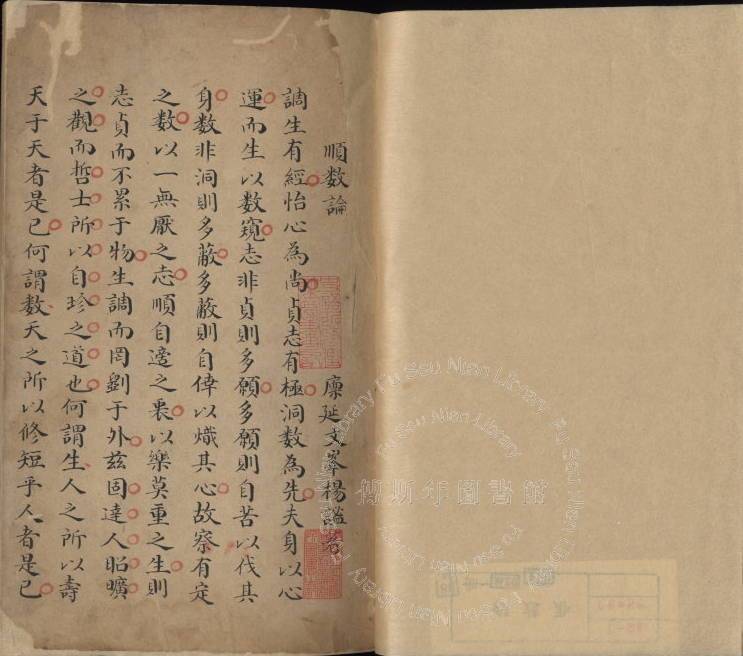 順数論
廩延文峯楊
調生有經怡心為尚貞志有極洞数為先夫身以心
運而生以数窺志非貞則多願多願則自苦以伐其
身数非洞則多蔽多蔽則自倖以熾其心故察有定
之数以一無厭之志順自適之裏以樂莫重之生則
志貞而不累于物生調而罔劉于外兹固達人昭曠
之觀而哲士所以自珍之道也何謂生人之所以壽
天于天者是已何謂数天之所以修短乎人者是已
傅斯年圖書館
Fu Ssu Nien Library